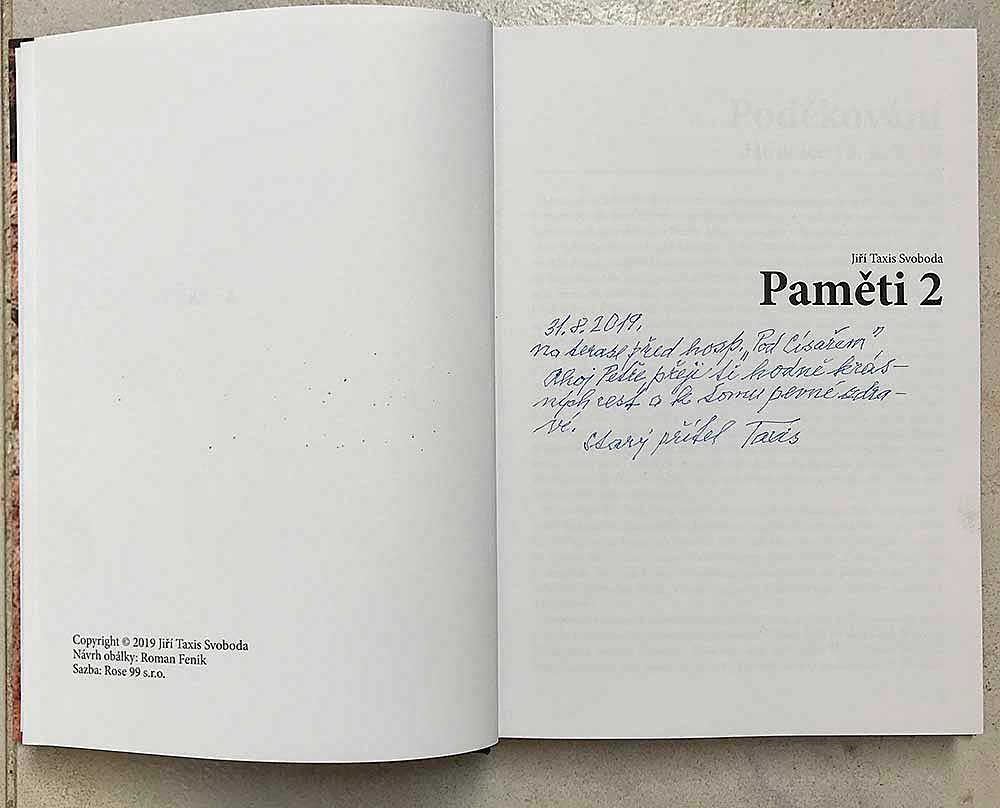 Copyright © 2019 Jiří Taxis Svoboda
Návrh obálky: Roman Feník
Sazba: Rose 99 s.r.o.
Poděkování
Jiří Taxis Svoboda
Paměti 2
31.8.2019.
na terase před hosp. „Pod Císařem"
Ahoj Petře, přeji ti hodně krás-
ných cest a k tomu pevné zdra-
ví.
starý přítel Taxis